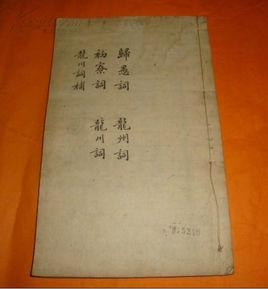 歸愚詞
龍州詞
初寮詞
龍川詞
龍川詞補